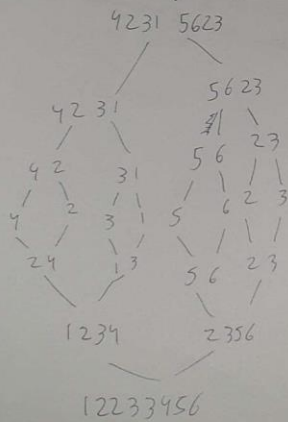 4231 5623
5623
42 31
23
56
42
31
4 2 3 1 5 6 2 3
24 13 56 23
1234 2356
12233456